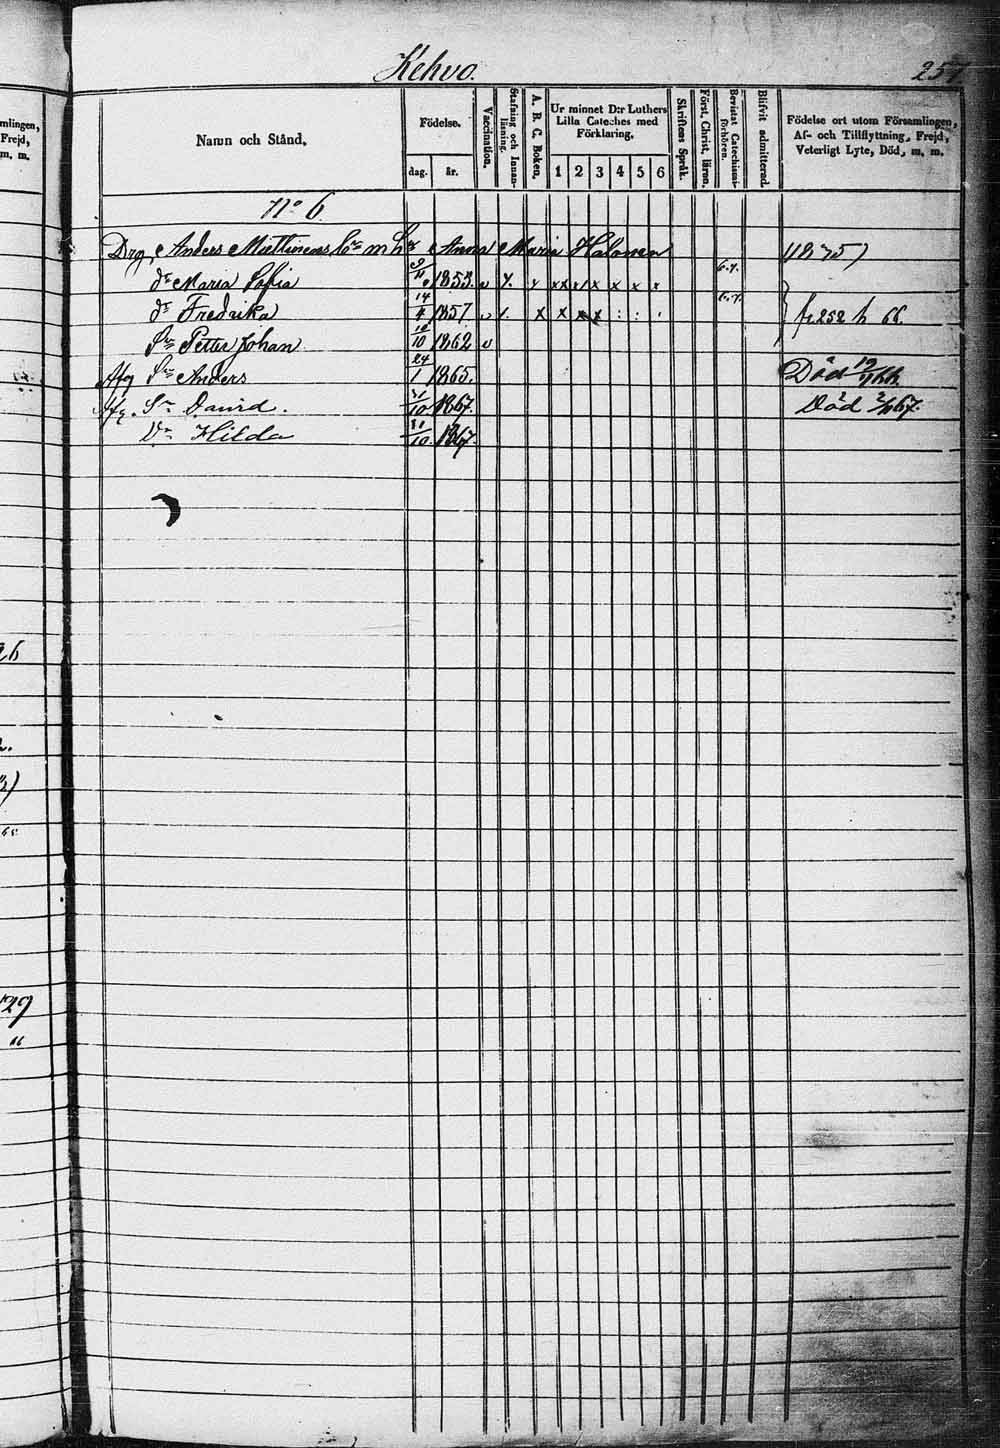 Kehvo. 257
mlingen,
Frejd,
m. m.
Namn och Stånd.
Födelse.
dag. år.
Vaccination.
Stafning och Innan-
läsning.
A. B. C. Boken.
Ur minnet D:r Luthers
Lilla Cateches med
Förklaring.
1 2 3 4 5 6
Skriftens Språk.
Först. Christ. läron.
Bevistat Catechismi-
förhören.
Blifvit admitterad.
Födelse ort utom Församlingen,
Af- och Tillflyttning, Frejd,
Veterligt Lyte, Död, m. m.
No 6
Anders Anna Maria Halonen
dr Maria Sofia 9/11 1853. v x x x x x x x 6.7.
dr Fredrika 14/4 1857 v 1. x x x x x : : : 6.7. fr 252 h 66.
Sn Petter Johan 10/10 1862 v
Afg Sn Anders 24/1 1865. Död
Afg. Sn David. 31/10 1867. Död
Dr Hilda 31/10 1867.
26
29
"